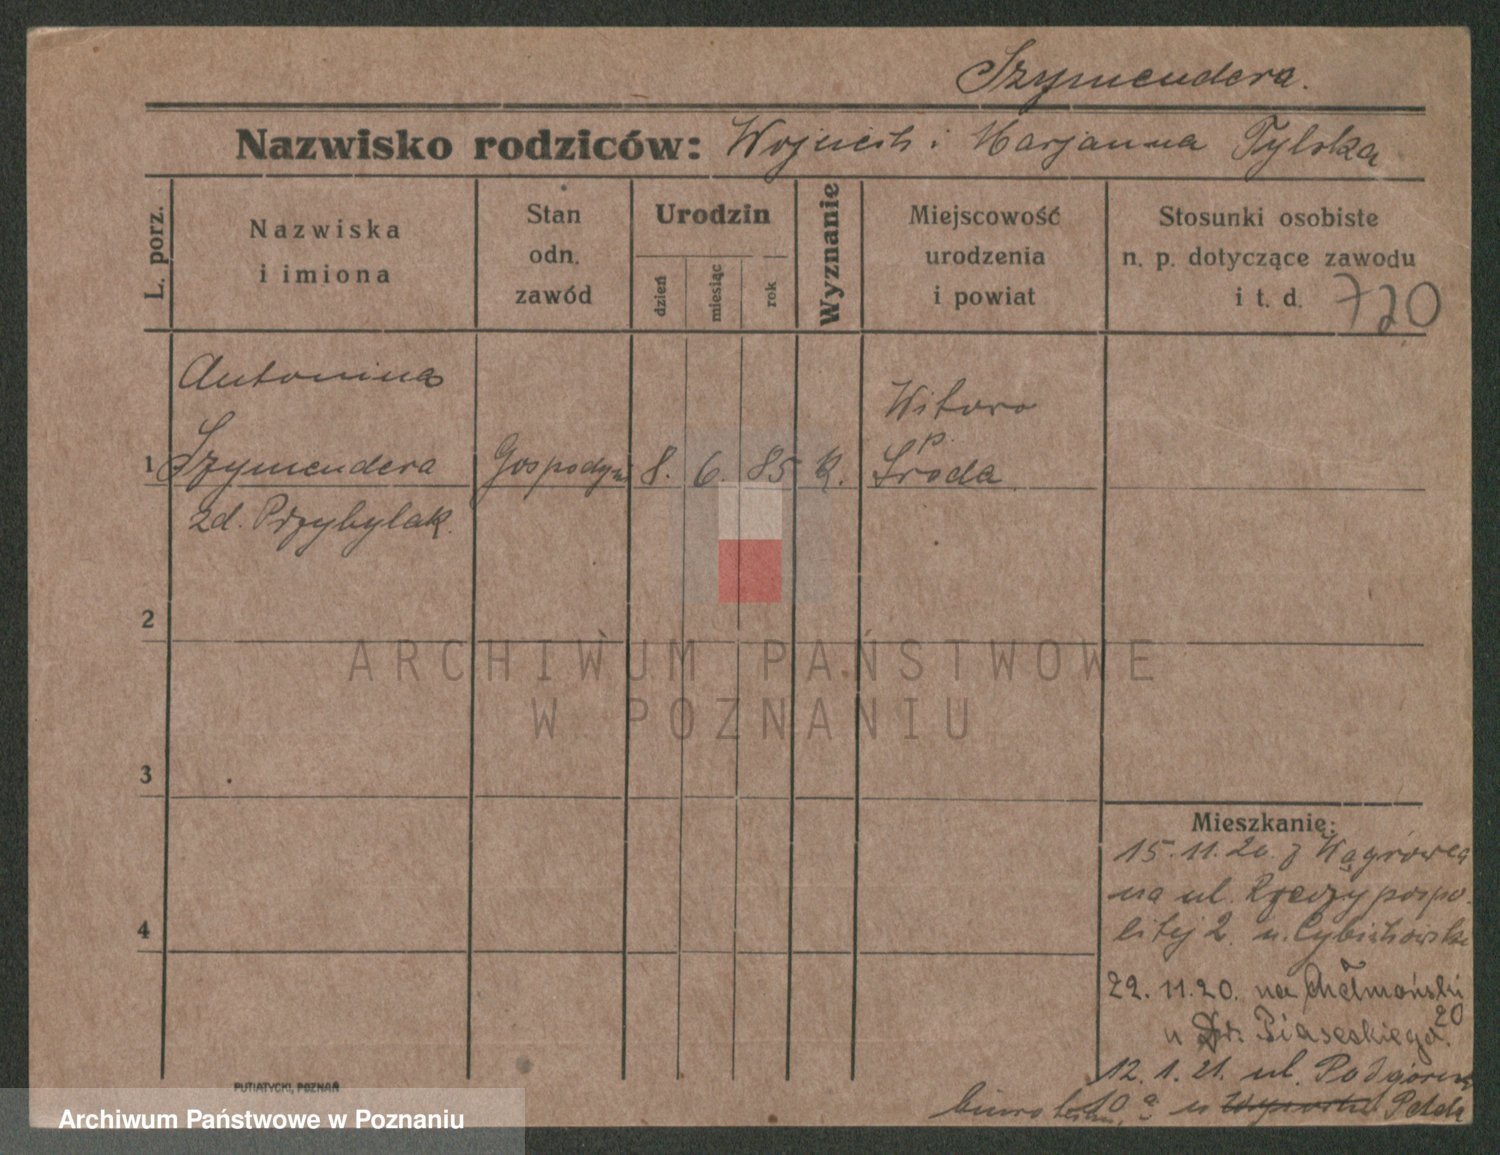 Szymendera.
Nazwisko rodziców: Wojciech i Marjanna Tylska
L. porz.
Nazwiska
i imiona
Stan
odn.
zawód
Urodzin
dzień
miesiąc
rok
Wyznanie
Miejscowość
urodzenia
i powiat
Stosunki osobiste
n. p. dotyczące zawodu
i t. d. 720
Antonina
1 Szymendera Gospodyni 8. 6. 85 K.
zd. Przybylak.
Witowo
p.
Środa
2
3
4
ARCHIWUM PAŃSTWOWE
W POZNANIU
Mieszkanie:
15.11.20. z Wągrowca
na ul. Rzeczypospo-
litej 2. u. Cybichowski
22.11.20. na Chełmoński
20
u Dr. Piaseskiego.
12.1.21. ul. Podgórna
10 a u
PUTIATYCKI, POZNAŃ
Archiwum Państwowe w Poznaniu